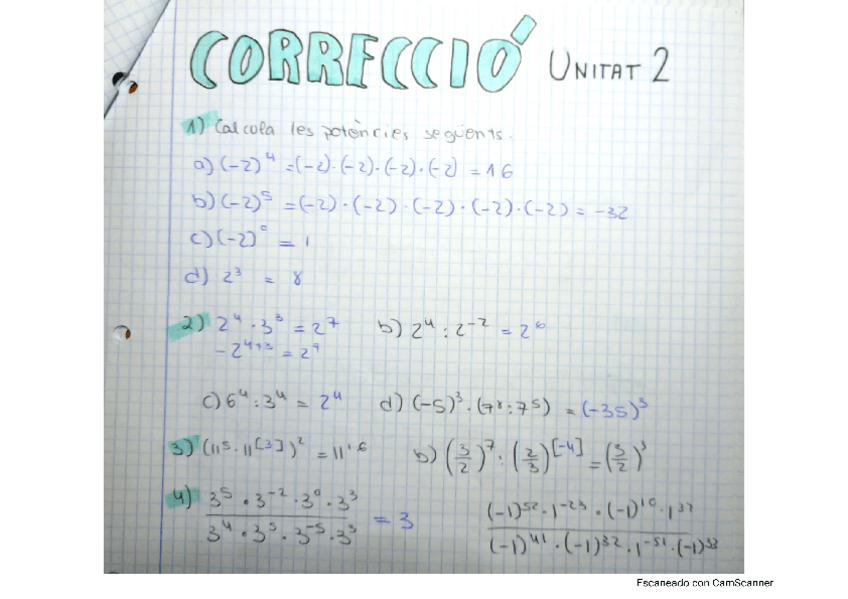 CORRECCIÓ UNITAT 2
1) Calcola les potències següents.
a) (-2)⁴ = (-2)·(-2)·(-2)·(-2) = 16
b) (-2)⁵ = (-2)·(-2)·(-2)·(-2)·(-2) = -32
c) (-2)⁰ = 1
d) 2³ = 8
2) 2⁴ · 3³ = 2⁷ b) 2⁴ : 2⁻² = 2⁶
- 2⁴⁺³ = 2⁷
c) 6⁴ : 3⁴ = 2⁴ d) (-5)³ · (7⁸ : 7⁵) = (-35)³
3) (11⁵ · 11^[3])² = 11¹⁶ b) (3/2)⁷ : (2/3)^[-4] = (3/2)³
4) 3⁵ · 3⁻² · 3⁰ · 3³ (-1)⁵² · 1⁻²³ · (-1)¹⁰ · 1³⁷
3⁴ · 3⁵ · 3⁻⁵ · 3³ = 3 (-1)⁴¹ · (-1)³² · 1⁻⁵¹ · (-1)⁵³
Escaneado con CamScanner